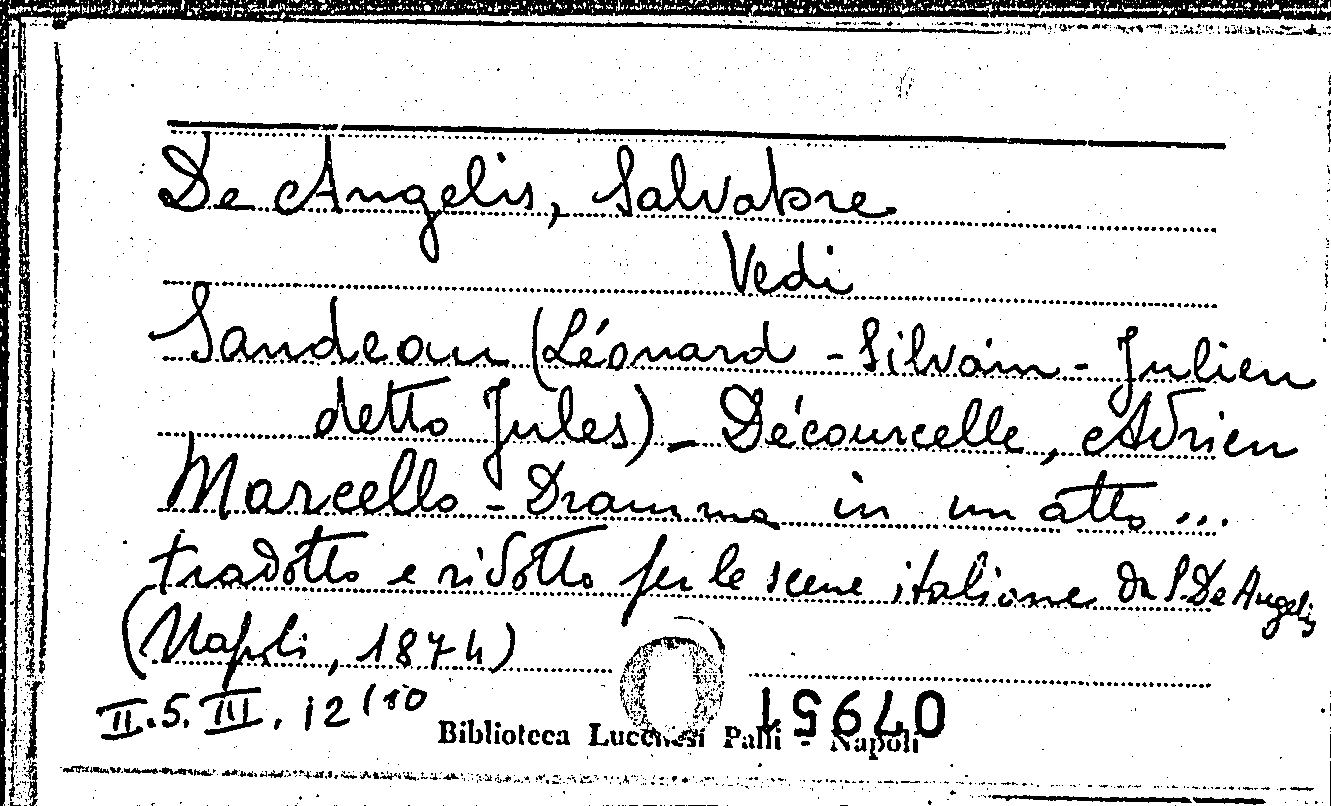 De Angelis, Salvatore
Vedi
Sandeau (Léonard - Silvain - Julien
detto Jules) - Décourcelle, Adrien
Marcello - Dramma in un atto ...
tradotto e ridotto per le scene italiane da S. De Angelis
(Napoli, 1874)
II. S. III. 12 (10
07951
Biblioteca Lucchesi Palli - Napoli